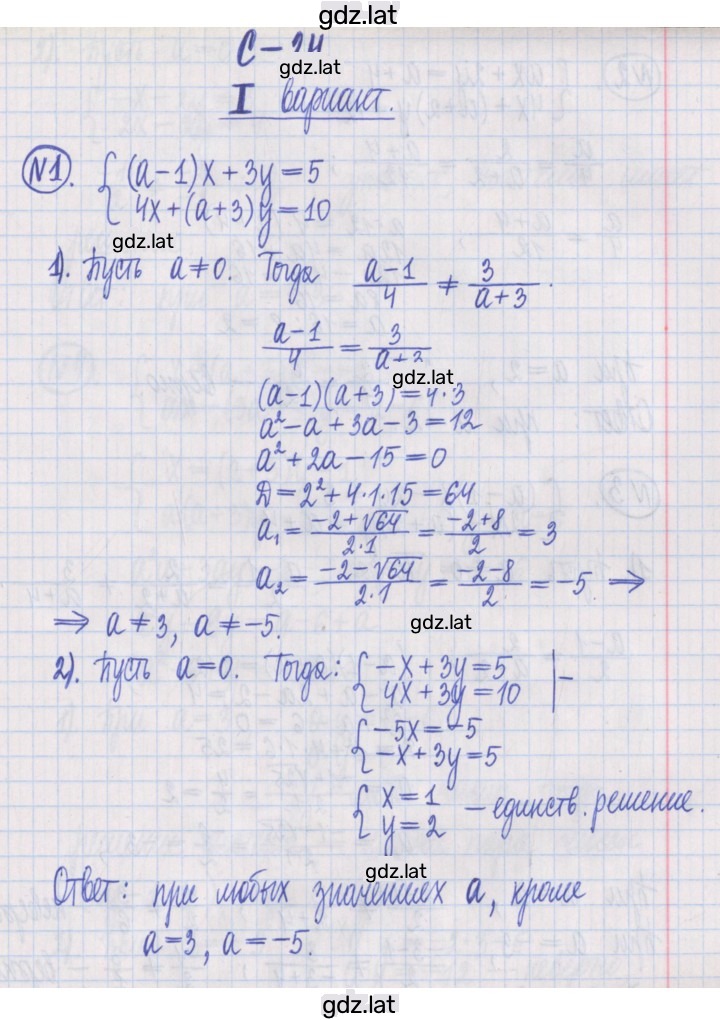 gdz.lat
С-24
gdz.lat
I вариант.
№1. { (a-1)x+3y=5
4x+(a+3)y=10
gdz.lat
1). Пусть a≠0. Тогда (a-1)/4 ≠ 3/(a+3).
(a-1)/4 = 3/(a+3)
gdz.lat
(a-1)(a+3)=4·3
a²-a+3a-3=12
a²+2a-15=0
D=2²+4·1·15=64
a₁=(-2+√64)/(2·1)=(-2+8)/2=3
a₂=(-2-√64)/(2·1)=(-2-8)/2=-5 ⇒
⇒ a≠3, a≠-5.
gdz.lat
2). Пусть a=0. Тогда: { -x+3y=5
4x+3y=10 | -
{ -5x=-5
-x+3y=5
{ x=1
y=2 - единств. решение.
gdz.lat
Ответ: при любых значениях a, кроме
a=3, a=-5.
gdz.lat